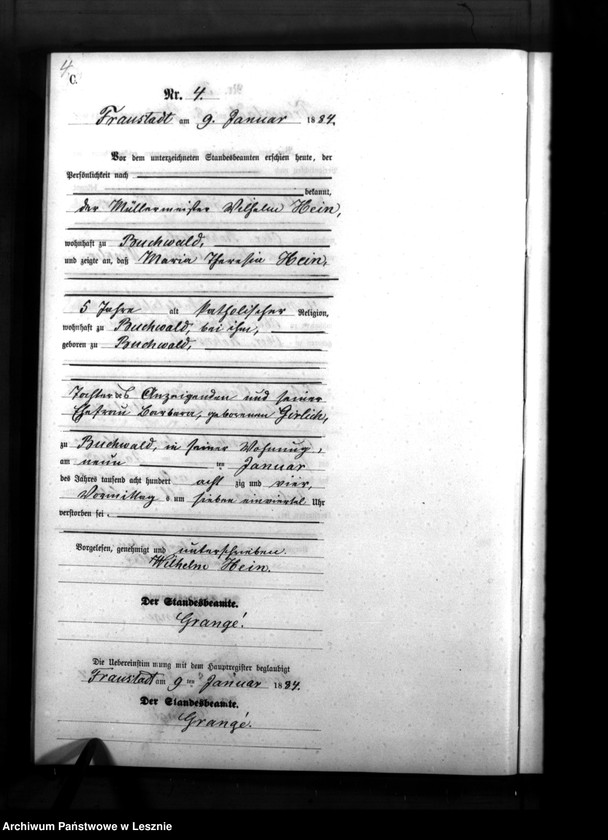 4.
C.
Nr. 4.
Fraustadt am 9. Januar 1884.
Vor dem unterzeichneten Standesbeamten erschien heute, der
Persönlichkeit nach
bekannt,
der Müllermeister Wilhelm Hein,
wohnhaft zu Buchwald,
und zeigte an, daß Maria Theresia Hein,
5 Jahre alt katholischer Religion,
wohnhaft zu Buchwald, bei ihm,
geboren zu Buchwald,
Tochter des Anzeigenden und seiner
Ehefrau Barbara, geborenen Gerlich,
zu Buchwald, in seiner Wohnung,
am neun ten Januar
des Jahres tausend acht hundert acht zig und vier,
Vormittags um sieben einviertel Uhr
verstorben sei.
Vorgelesen, genehmigt und unterschrieben.
Wilhelm Hein.
Der Standesbeamte.
Grangé.
Die Uebereinstimmung mit dem Hauptregister beglaubigt
Fraustadt am 9 ten Januar 1884.
Der Standesbeamte.
Grangé.
Archiwum Państwowe w Lesznie